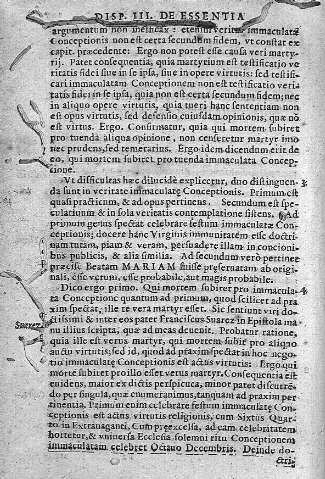 DISP. III. DE ESSENTIA
argumentum non inefficax: etenim veritas immaculatæ
Conceptionis non est certa secundum fidem, vt constat ex
capit. præcedente: Ergo non potest esse causa veri marty-
rij. Patet consequentia, quia martyrium est testificatio ve-
ritatis fidei siue in se ipsa, siue in opere virtutis: sed testifi-
cari immaculatam Conceptionem non est testificatio veri-
tatis fidei in se ipsis, quia non est certa secundum fidem; nec
in aliquo opere virtutis, quia tueri hanc sententiam non
est opus virtutis, sed defensio cuiusdam opinionis, quæ nō
est virtus. Ergo. Confirmatur, quia qui mortem subiret
pro tuenda aliqua opinione, non censeretur martyr imo
nec prudens, sed temerarius. Ergo idem dicendum erit de
eo, qui mortem subiret pro tuenda immaculata Concep-
tione.
Vt difficultas hæc dilucidè explicetur, duo distinguen- 3.
da sunt in veritate immaculatę Conceptionis. Primum est
quasi practicum, & ad opus pertinens. Secundum est spe-
culatiuum & in sola veritatis contemplatione sistens. Ad
primum genus spectat celebrare festum immaculatæ Con-
ceptionis; docere hanc Virginis immunitatem esse doctri-
nam tutam, piam & veram, persuadere illam in concioni-
bus publicis, & alia similia. Ad secundum verò pertinet
præcisè Beatam MARIAM fuisse præseruatam ab origi-
nali, esse verum, esse probabile, aut magis probabile.
Dico ergo primo. Qui mortem subiret pro immacula- 4.
ta Conceptione quantum ad primum, quod scilicet ad pra
xim spectat, ille re vera martyr esset. Sic sentiunt viri do-
ctissimi & inter eos pater Franciscus Suarez in Epistola ma
Suarez. nu illius scripta, quæ ad meas deuenit. Probatur ratione,
quia ille est verus martyr, qui mortem subit pro aliquo
actu virtutis; sed id, quod ad praxim spectat in hoc nego-
tio immaculatę Conceptionis est actus virtutis: Ergo qui
morte subiret pro illo esset verus martyr. Consequentia est
euidens, maior ex dictis perspicua, minor patet discurrē-
do per singula, quæ enumerauimus, tanquam ad praxim per
tinentia. Primum enim celebrare festum immaculatę Con-
ceptionis est actus virtutis religionis, cum Sixtus Quar-
to in Extrauaganti, Cum præexcelsa, ad eam celebritatem
hortetur, & vniuersa Ecclesia solemni ritu Conceptionem
immaculatam celebret Octauo Decembris. Deinde do-